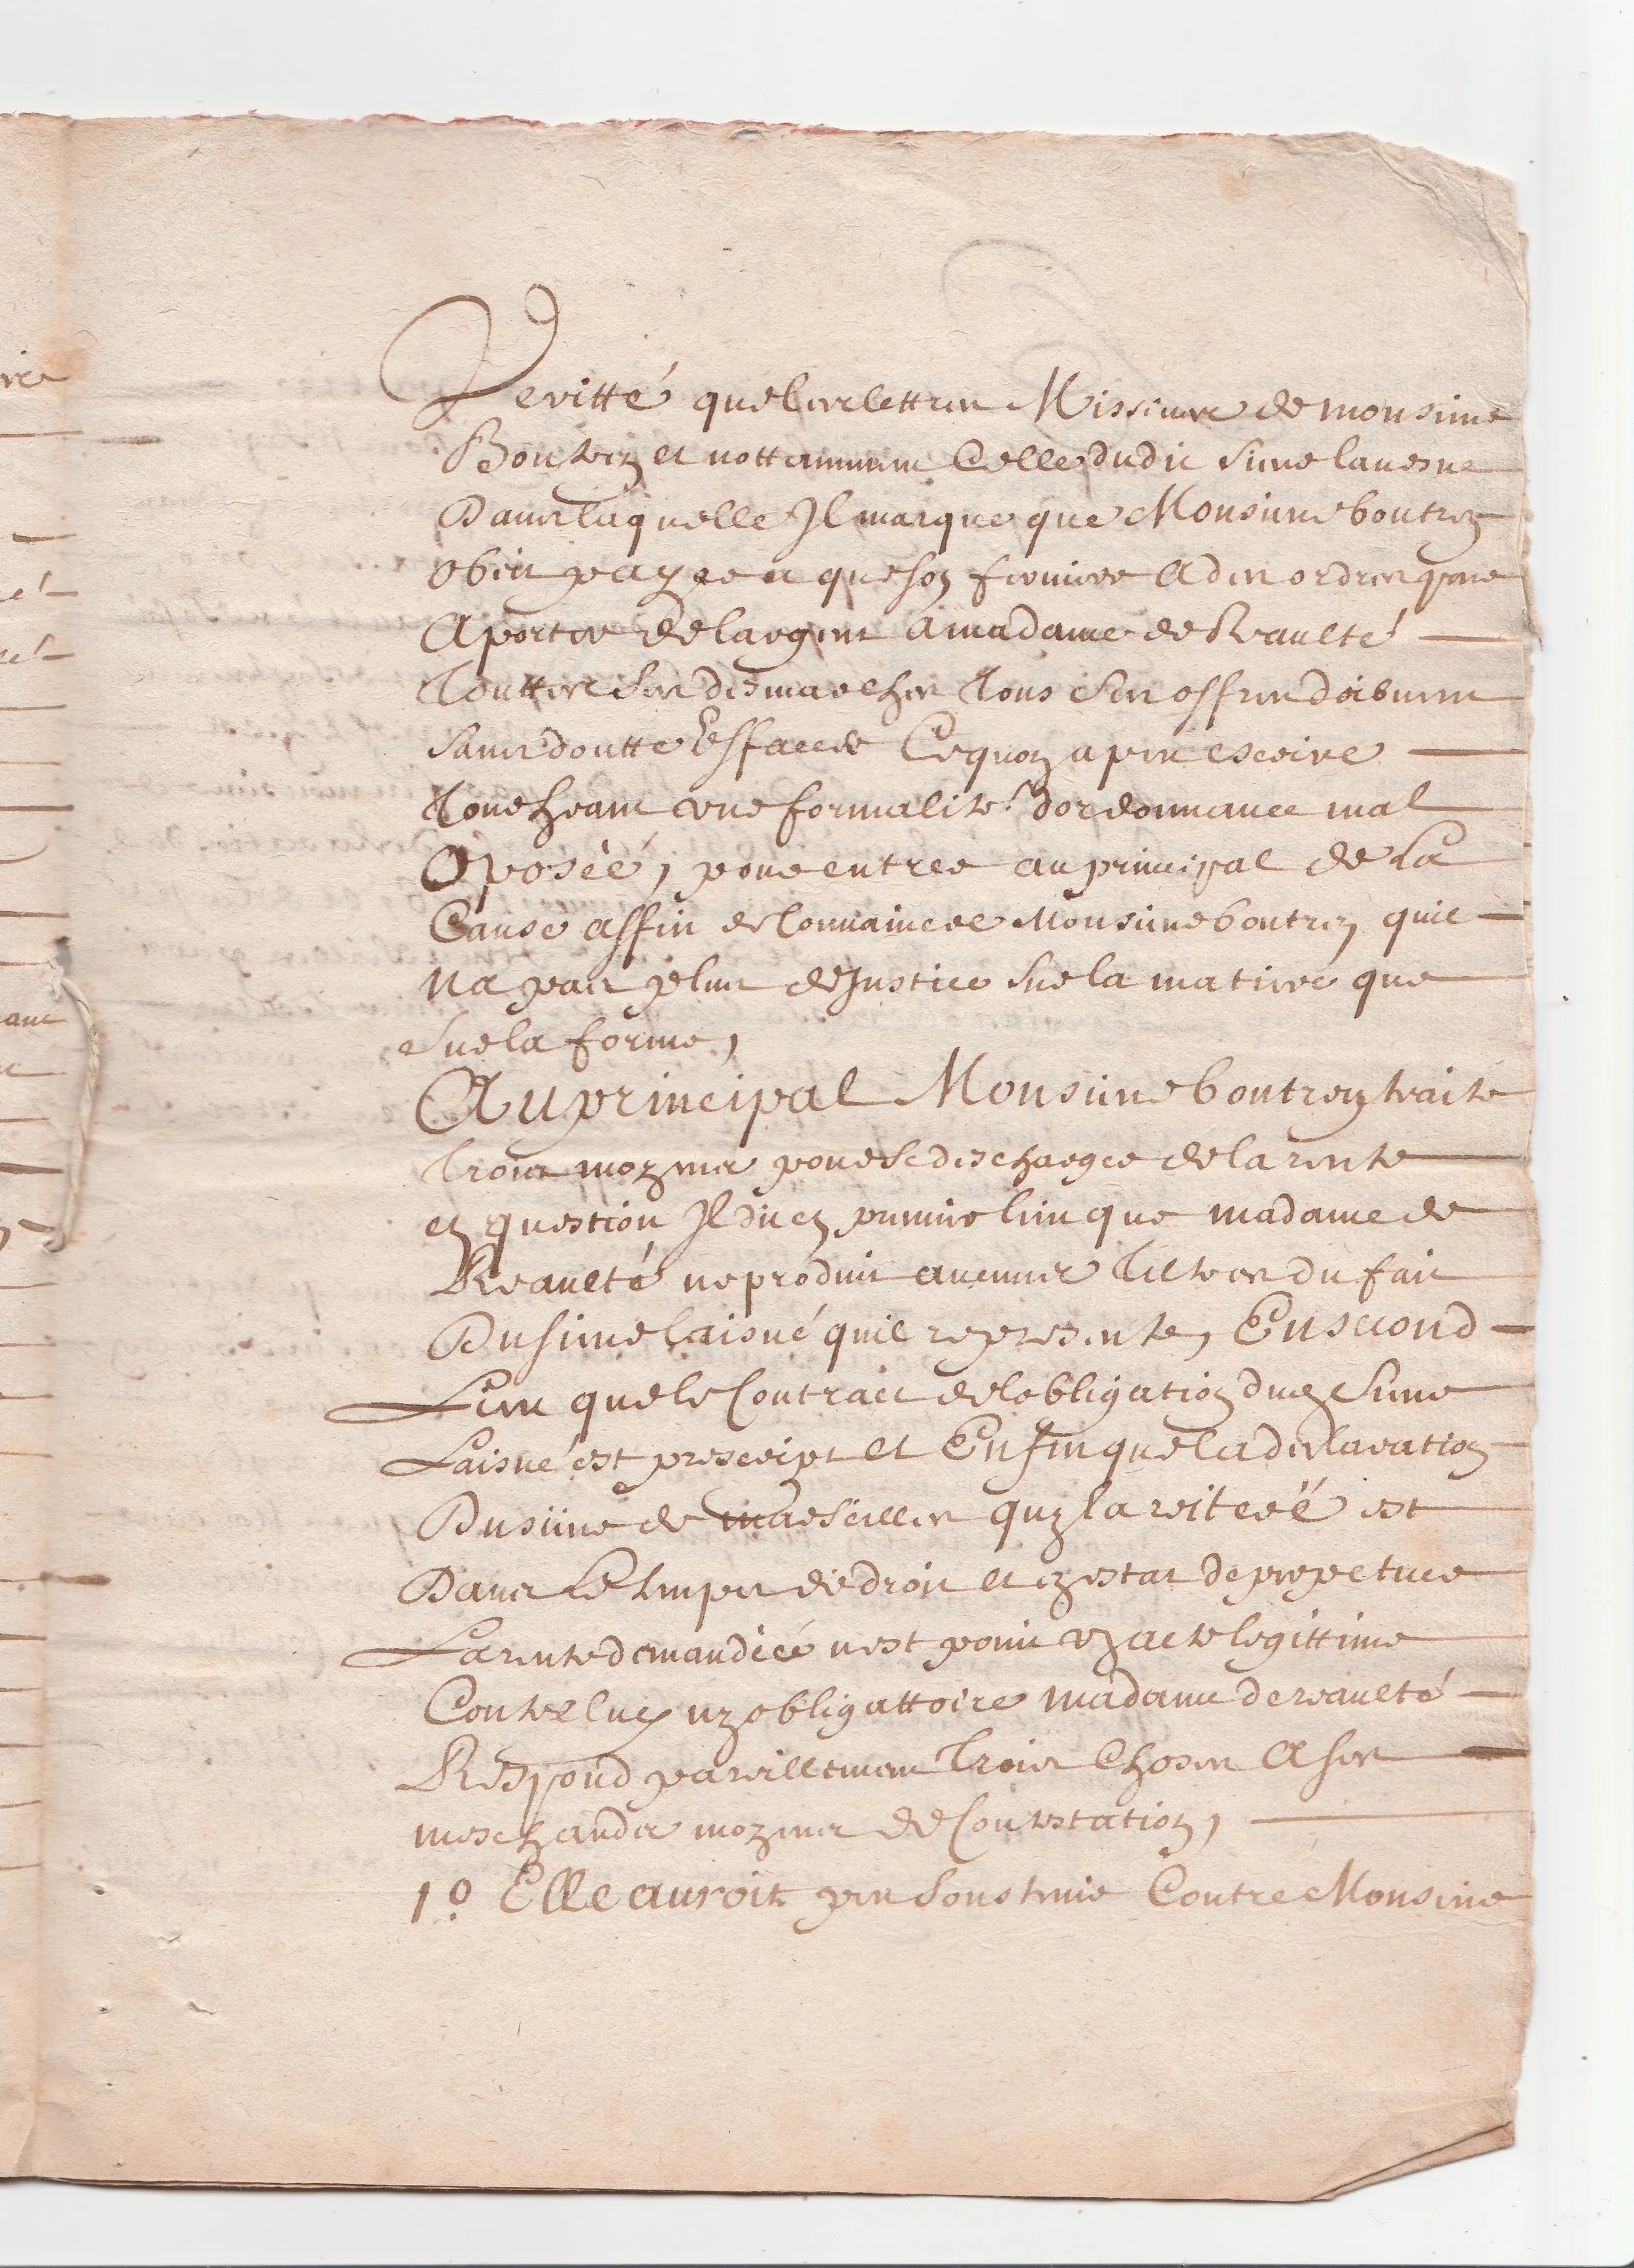 Veritté que les lettres Missiues de monsieur
Boutrey et nottamment Celle dudit sieur lauesne
Dans laquelle Il marque que Monsieur boutrey
obeit payer et que son fermier a des ordres pour
Aporter de largent a madame de Reaulté
Touttes ses desmarches Tous ses offres doibuent
sans doutte Effacer Ce quon a peu escrire
Touchant vne formalité dordonnance mal
Oposéé, pour entrer au principal de La
Cause affin de Conuaincre Monsieur boutrey quil
Na pas plus de Justice Sur la matiere que
Sur la forme,
Au principal Monsieur boutrey traite
Trois moyens pour se descharger de la rente
en question Il dit en premier lieu que madame de
Reaulté ne produit aucuns Tiltres du fait
Du sieur laisné quil represente, En second
Lieu que le Contract de lobligation du sieur
Laisné est prescript et Enfin que la declaration
Du sieur de marseilles quy la reiteréé est
Dans Le temps de droit et en estat de perpetuer
La rente demandéé nest point vn acte legittime
Contre luy ny obligattoire madame de reaulté
Respond pareillement Trois Choses A ses
meschands moyens de Contestation,
1º Elle auroit peu soustenir Contre Monsieur